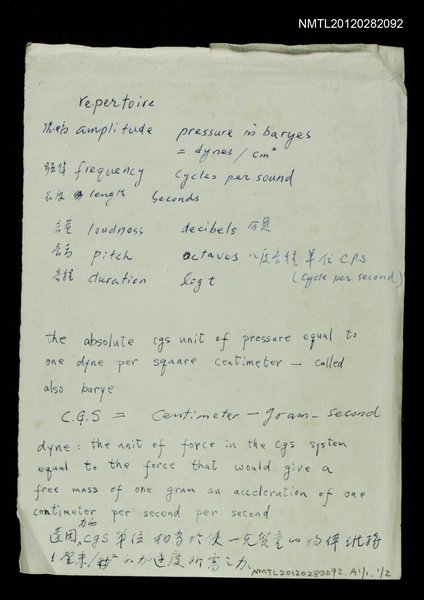 NMTL20120282092
repertoire
振幅 amplitude pressure in baryes
= dynes / cm²
頻律 frequency cycles per sound
長度 length seconds
音量 loudness decibels 分貝
音高 pitch octaves 八度音程 單位 C.P.S
音程 duration log t (cycle per second)
the absolute cgs unit of pressure equal to
one dyne per square centimeter — called
also barye
C.G.S = Centimeter – gram – second
dyne: the unit of force in the cgs system
equal to the force that would give a
free mass of one gram an accleration of one
centimeter per second per second
達因, 力的 cgs 單位 相當於使一克質量的物体
1厘米/秒² 的加速度所需之力.
NMTL20120282092. A1/1, 1/2